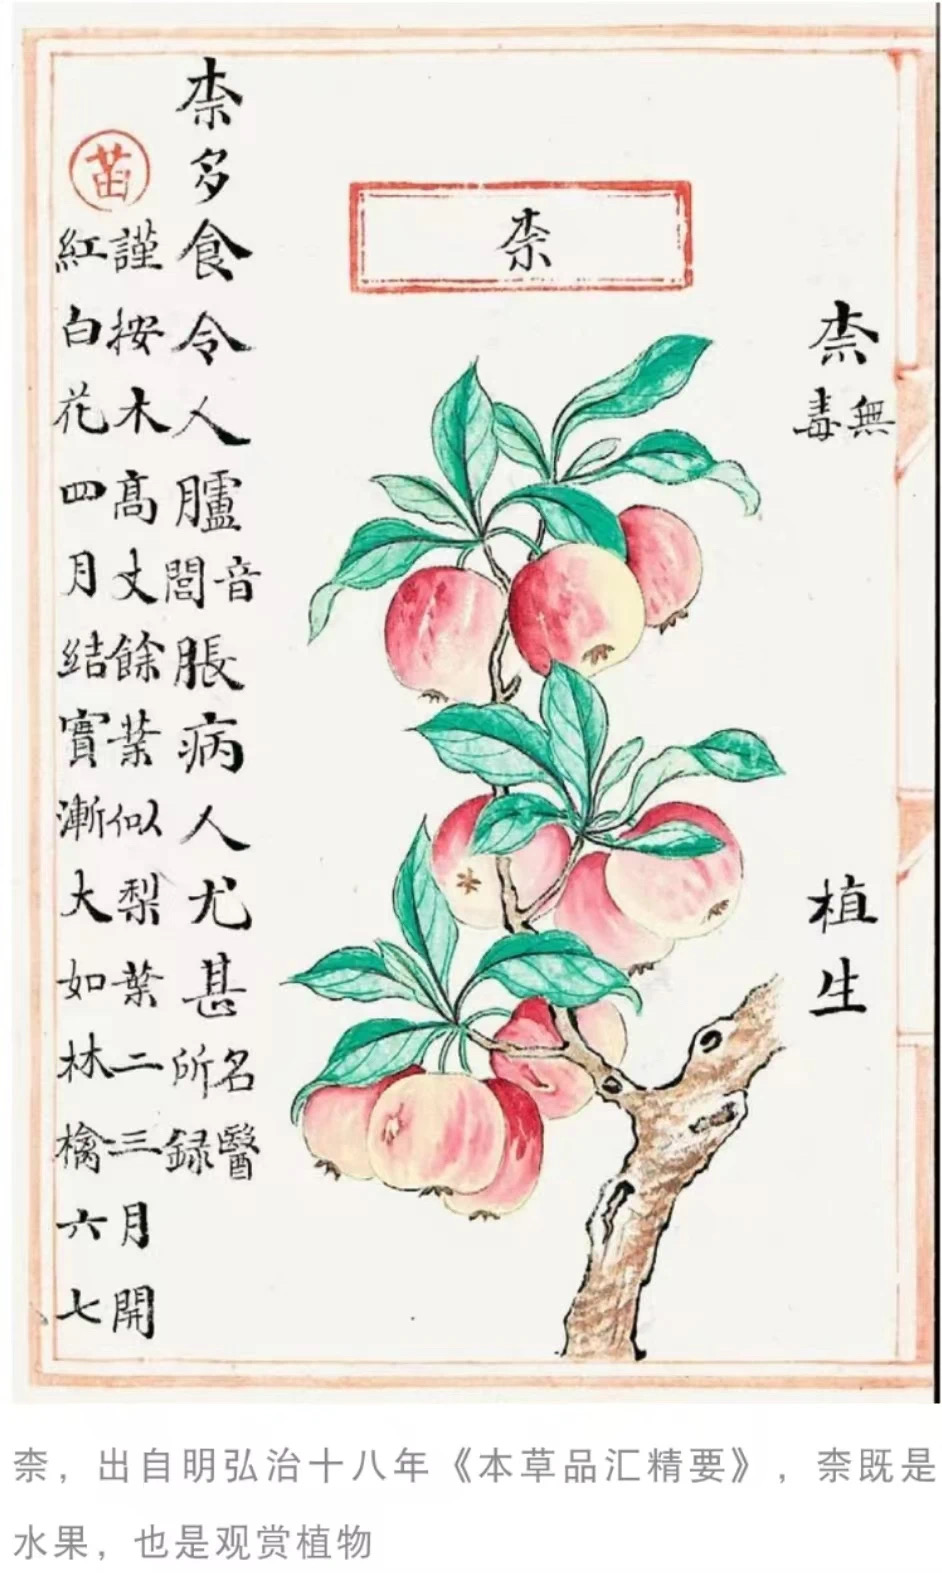 柰無毒
植生
柰
柰多食令人臚音閭脹病人尤甚名醫所録
苗
謹按木高丈餘葉似梨葉二三月開
紅白花四月結實漸大如林檎六七
柰，出自明弘治十八年《本草品汇精要》，柰既是
水果，也是观赏植物